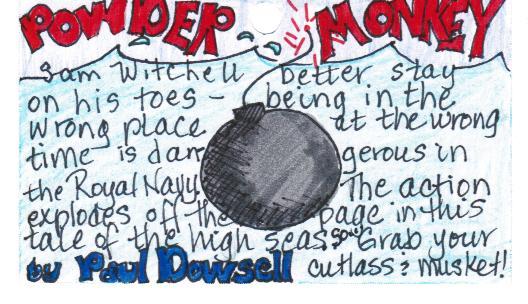 POWDER MONKEY
Sam Witchell better stay
on his toes - being in the
wrong place at the wrong
time is dangerous in
the Royal Navy The action
explodes off the page in this
tale of the high seas so Grab your
by Paul Dowsell cutlass & musket!